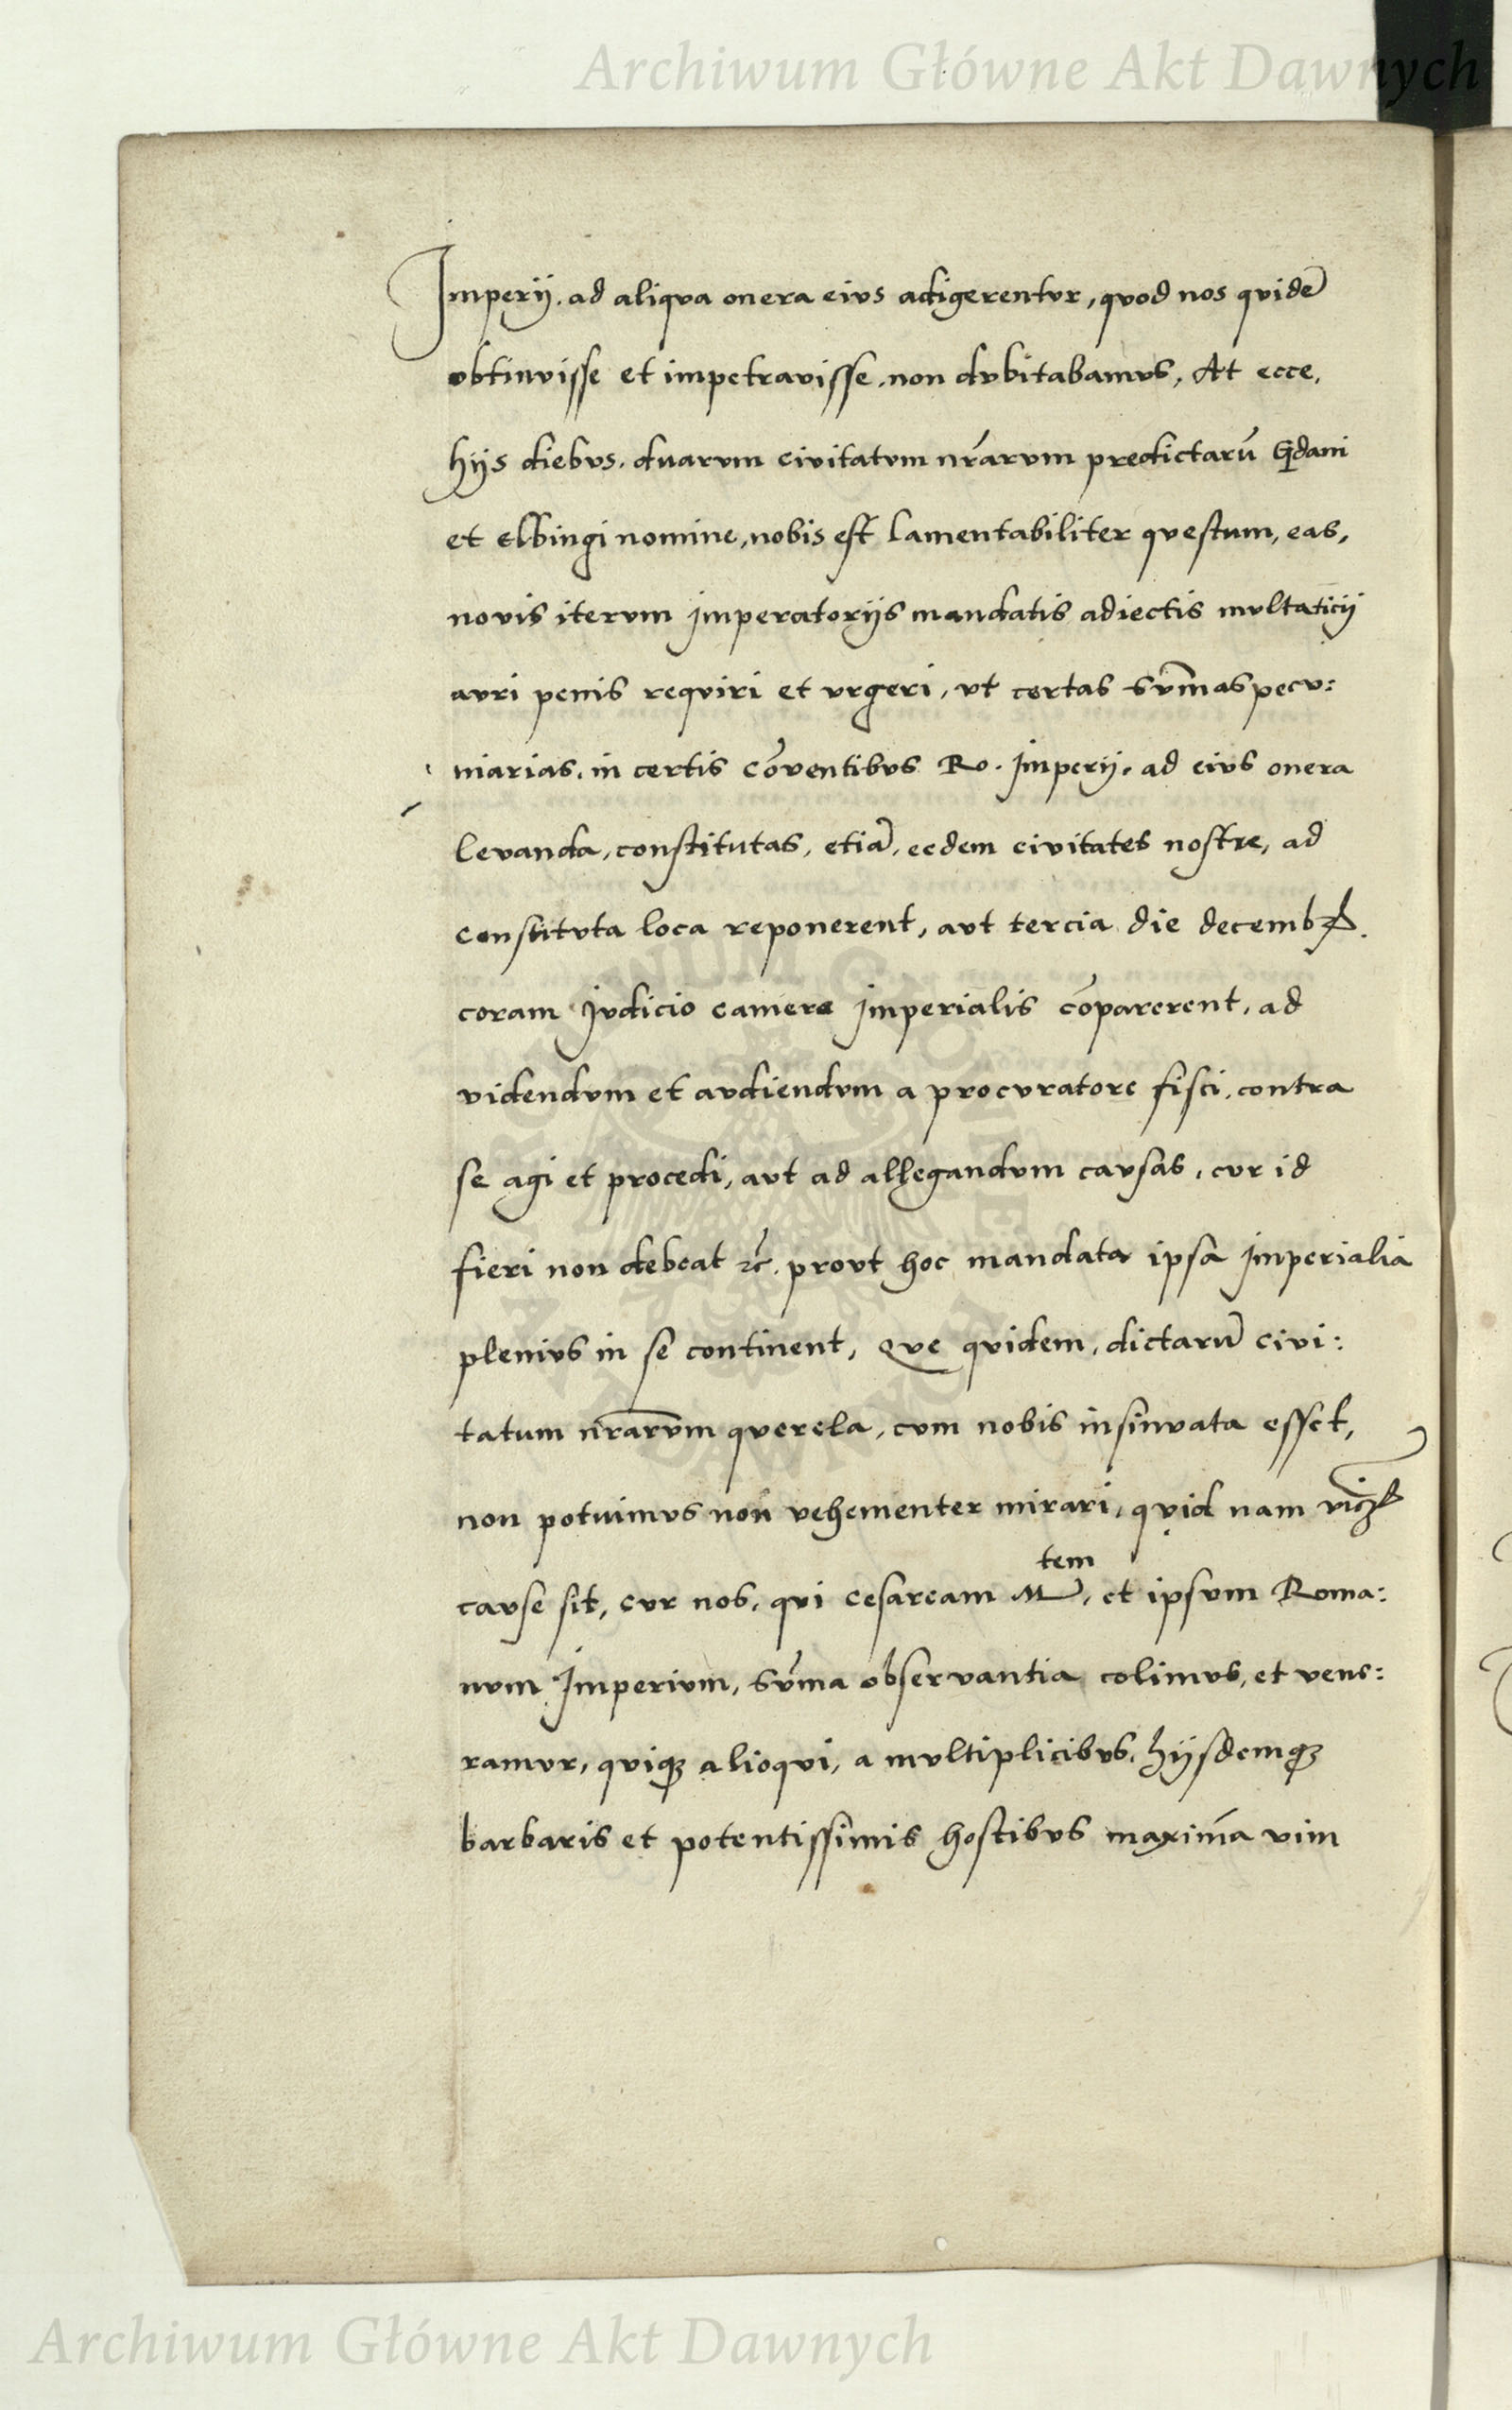 Archiwum Główne Akt Dawnych
Imperij. ad aliqva onera eivs adigerentvr, qvod nos qvidē
obtinvisse et impetravisse. non dvbitabamvs, At ecce.
hijs diebvs. dvarvm civitatvm nr̄arvm predictarū Gdani
et Elbingi nomine, nobis est lamentabiliter qvestum, eas,
novis itervm imperatorijs mandatis adiectis mvltaticij
avri penis reqviri et vrgeri, vt certas sv̄mas pecv:
niarias. in certis cōventibvs Ro. Imperij. ad eivs onera
levanda, constitvtas, etiā, eedem civitates nostre, ad
constitvta loca reponerent, avt tercia die decembꝝ.
coram Jvdicio camere Imperialis cōparerent, ad
videndvm et avdiendvm a procvratore fisci. contra
se agi et procedi, avt ad allegandvm cavsas, cvr id
fieri non debeat ꝛc̄. provt hoc mandata ipsa Imperialia
plenivs in se continent, Qve qvidem, dictarū civi:
tatum nr̄arvm qverela, cvm nobis insinvata esset,
non potvimvs non vehementer mirari, qvid nam
cavse sit, cvr nos, qvi cesaream M tem, et ipsvm Roma:
nvm Imperivm, sv̄ma observantia colimvs, et vene:
ramvr, qviqꝫ alioqvi, a mvltiplicibvs, hijsdemqꝫ
barbaris et potentissimis hostibvs maximā vim
Archiwum Główne Akt Dawnych